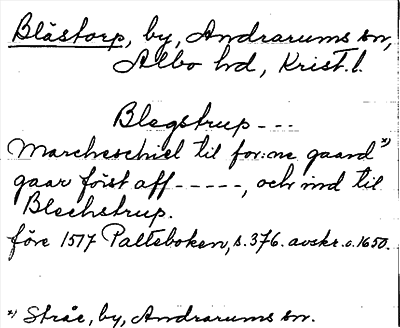 Blästorp, by, Andrarums sn,
Albo hd, Krist. l.
Blegstrup ---
Marcheschiel til for:ne gaard *)
gaar först aff -----, och ind til
Blechstrup.
före 1517 Palteboken, s. 376. avskr. c. 1650.
*) Stråe, by, Andrarums sn.